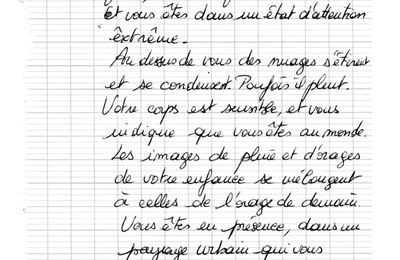 Et vous êtes dans un état d'attention
extrême.
Au dessus de vous des nuages s'étirent
et se condensent. Parfois il pleut.
Votre corps est sensible, et vous
indique que vous êtes au monde.
Les images de pluie et d'orages
de votre enfance se mélangent
à celles de l'orage de demain.
Vous êtes en présence, dans un
paysage urbain qui vous